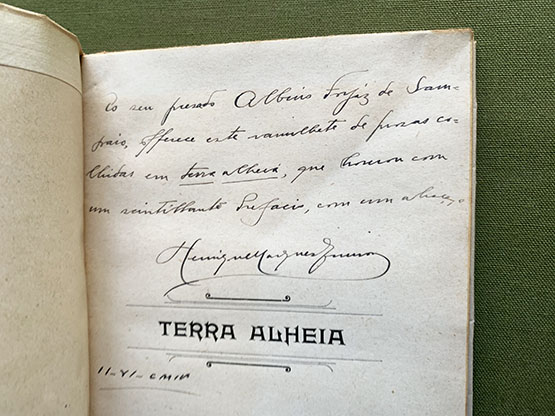 Ao seu presado Albino Forjaz de Sam-
paio, offerece este ramilhete de prozas co-
lhidas em terra alheia, que honrou com
um scintillante Prefacio, com um abraço
Henrique Marques Junior
TERRA ALHEIA
11-VI-